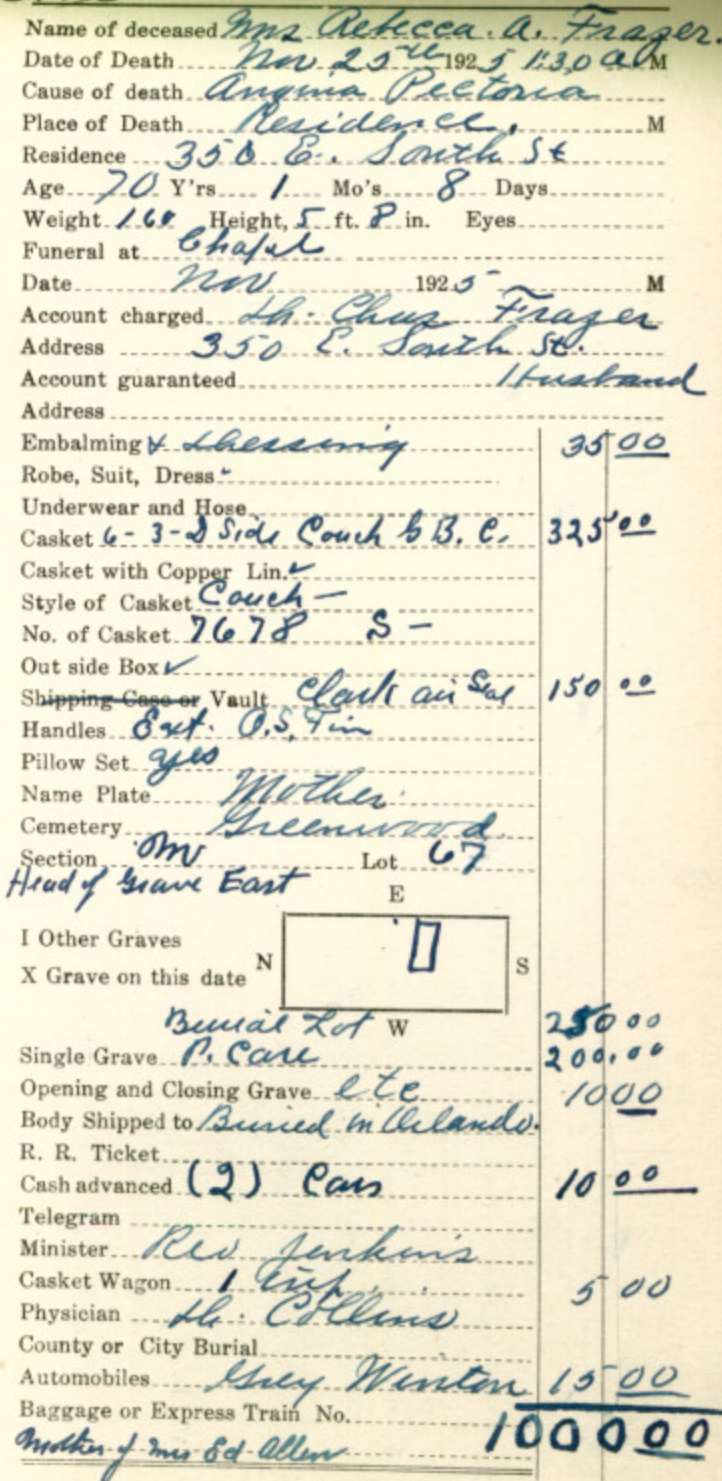 Name of deceased Mrs Rebecca. A. Frazer.
Date of Death Nov 25th 1925 1:30 a M
Cause of death Angina Pectoria
Place of Death Residence. M
Residence 350 E. South St
Age 70 Y'rs 1 Mo's 8 Days
Weight 160 Height, 5 ft. 8 in. Eyes
Funeral at Chapel
Date Nov 1925 M
Account charged Chas Frazer
Address 350 E. South St.
Account guaranteed Husband
Address
Embalming & Dressing 35 00
Robe, Suit, Dress
Underwear and Hose
Casket 6-3-D Side Couch G B. C. 325 00
Casket with Copper Lin. ✓
Style of Casket Couch –
No. of Casket 7678 S –
Out side Box ✓
Shipping Case or Vault Clark air Seal 150 00
Handles Ext. O.S. Fin
Pillow Set yes
Name Plate Mother
Cemetery Greenwood
Section M Lot 67
Head of Grave East
E
I Other Graves
N S
X Grave on this date
Burial Lot W 250 00
Single Grave P. Care 200.00
Opening and Closing Grave etc 10 00
Body Shipped to Buried in Orlando.
R. R. Ticket
Cash advanced (2) Cars 10 00
Telegram
Minister Rev Jenkins
Casket Wagon 1 5 00
Physician Collins
County or City Burial
Automobiles Grey Winton 15 00
Baggage or Express Train No. 1000 00
Mother of Mrs Ed Allen